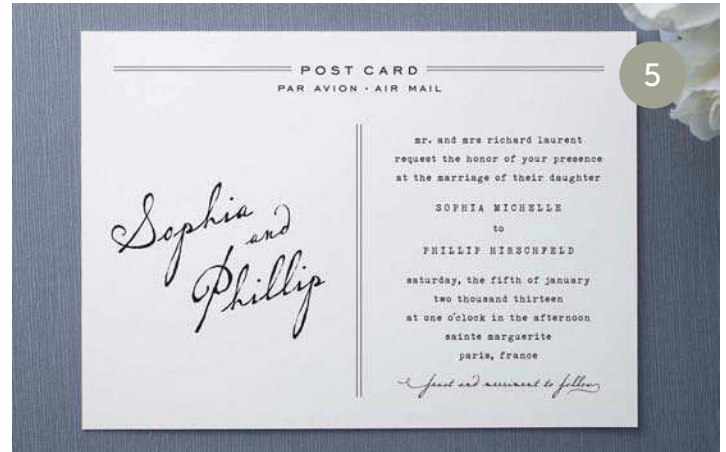 POST CARD
PAR AVION · AIR MAIL
5
Sophia
and
Phillip
mr. and mrs richard laurent
request the honor of your presence
at the marriage of their daughter
SOPHIA MICHELLE
to
PHILLIP HIRSCHFELD
saturday, the fifth of january
two thousand thirteen
at one o'clock in the afternoon
sainte marguerite
paris, france
feast and merriment to follow